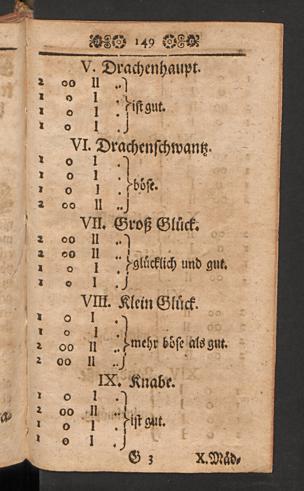 149
V. Drachenhaupt.
2 oo II ..
1 o I .
1 o I . } ist gut.
1 o I .
VI. Drachenschwantz.
1 o I .
1 o I .
1 o I . } böse.
2 oo II ..
VII. Groß Glück.
2 oo II ..
2 oo II ..
1 o I . } glücklich und gut.
1 o I .
VIII. Klein Glück.
1 o I .
1 o I .
2 oo II .. } mehr böse als gut.
2 oo II ..
IX. Knabe.
1 o I .
2 oo II ..
1 o I . } ist gut.
1 o I .
G 3 X. Mäd-